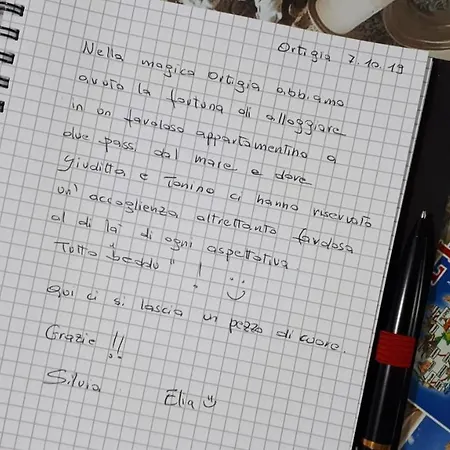 Ortigia 7.10.19
Nella magica Ortigia abbiamo
avuto la fortuna di alloggiare
in un favoloso appartamentino a
due passi dal mare e dove
Giuditta e Tonino ci hanno riservato
un' accoglienza altrettanto favolosa
al di la' di ogni aspettativa
Tutto "beddu" ! :)
Qui ci si lascia un pezzo di cuore.
Grazie !!
Silvia Elia